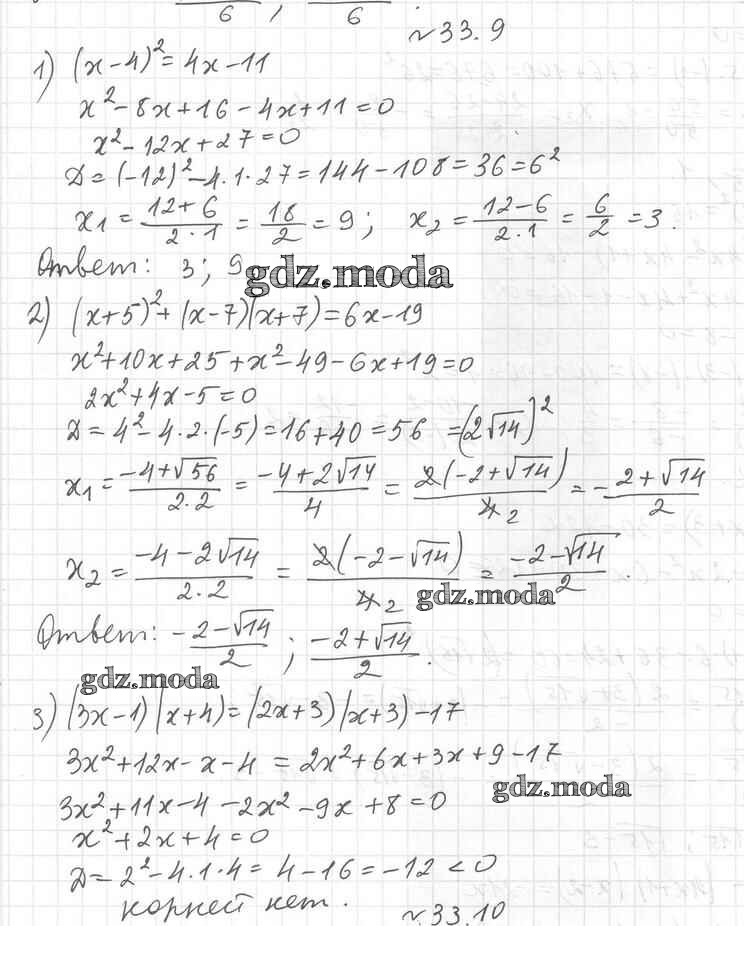 6 ; 6 .
№33.9
1) (x-4)² = 4x-11
x²-8x+16-4x+11=0
x²-12x+27=0
D=(-12)²-4·1·27=144-108=36=6²
x1 = (12+6)/(2·1) = 18/2 = 9; x2 = (12-6)/(2·1) = 6/2 = 3.
Ответ: 3; 9
gdz.moda
2) (x+5)²+(x-7)(x+7)=6x-19
x²+10x+25+x²-49-6x+19=0
2x²+4x-5=0
D=4²-4·2·(-5)=16+40=56 =(2√14)²
x1 = (-4+√56)/(2·2) = (-4+2√14)/4 = 2(-2+√14)/4 2 = -(2+√14)/2
x2 = (-4-2√14)/(2·2) = 2(-2-√14)/4 2 = (-2-√14)/2.
gdz.moda
Ответ: -(2-√14)/2; (-2+√14)/2.
gdz.moda
3) (3x-1)(x+4)=(2x+3)(x+3)-17
3x²+12x-x-4 = 2x²+6x+3x+9-17
gdz.moda
3x²+11x-4-2x²-9x+8=0
x²+2x+4=0
D=2²-4·1·4=4-16=-12<0
корней нет.
№33.10